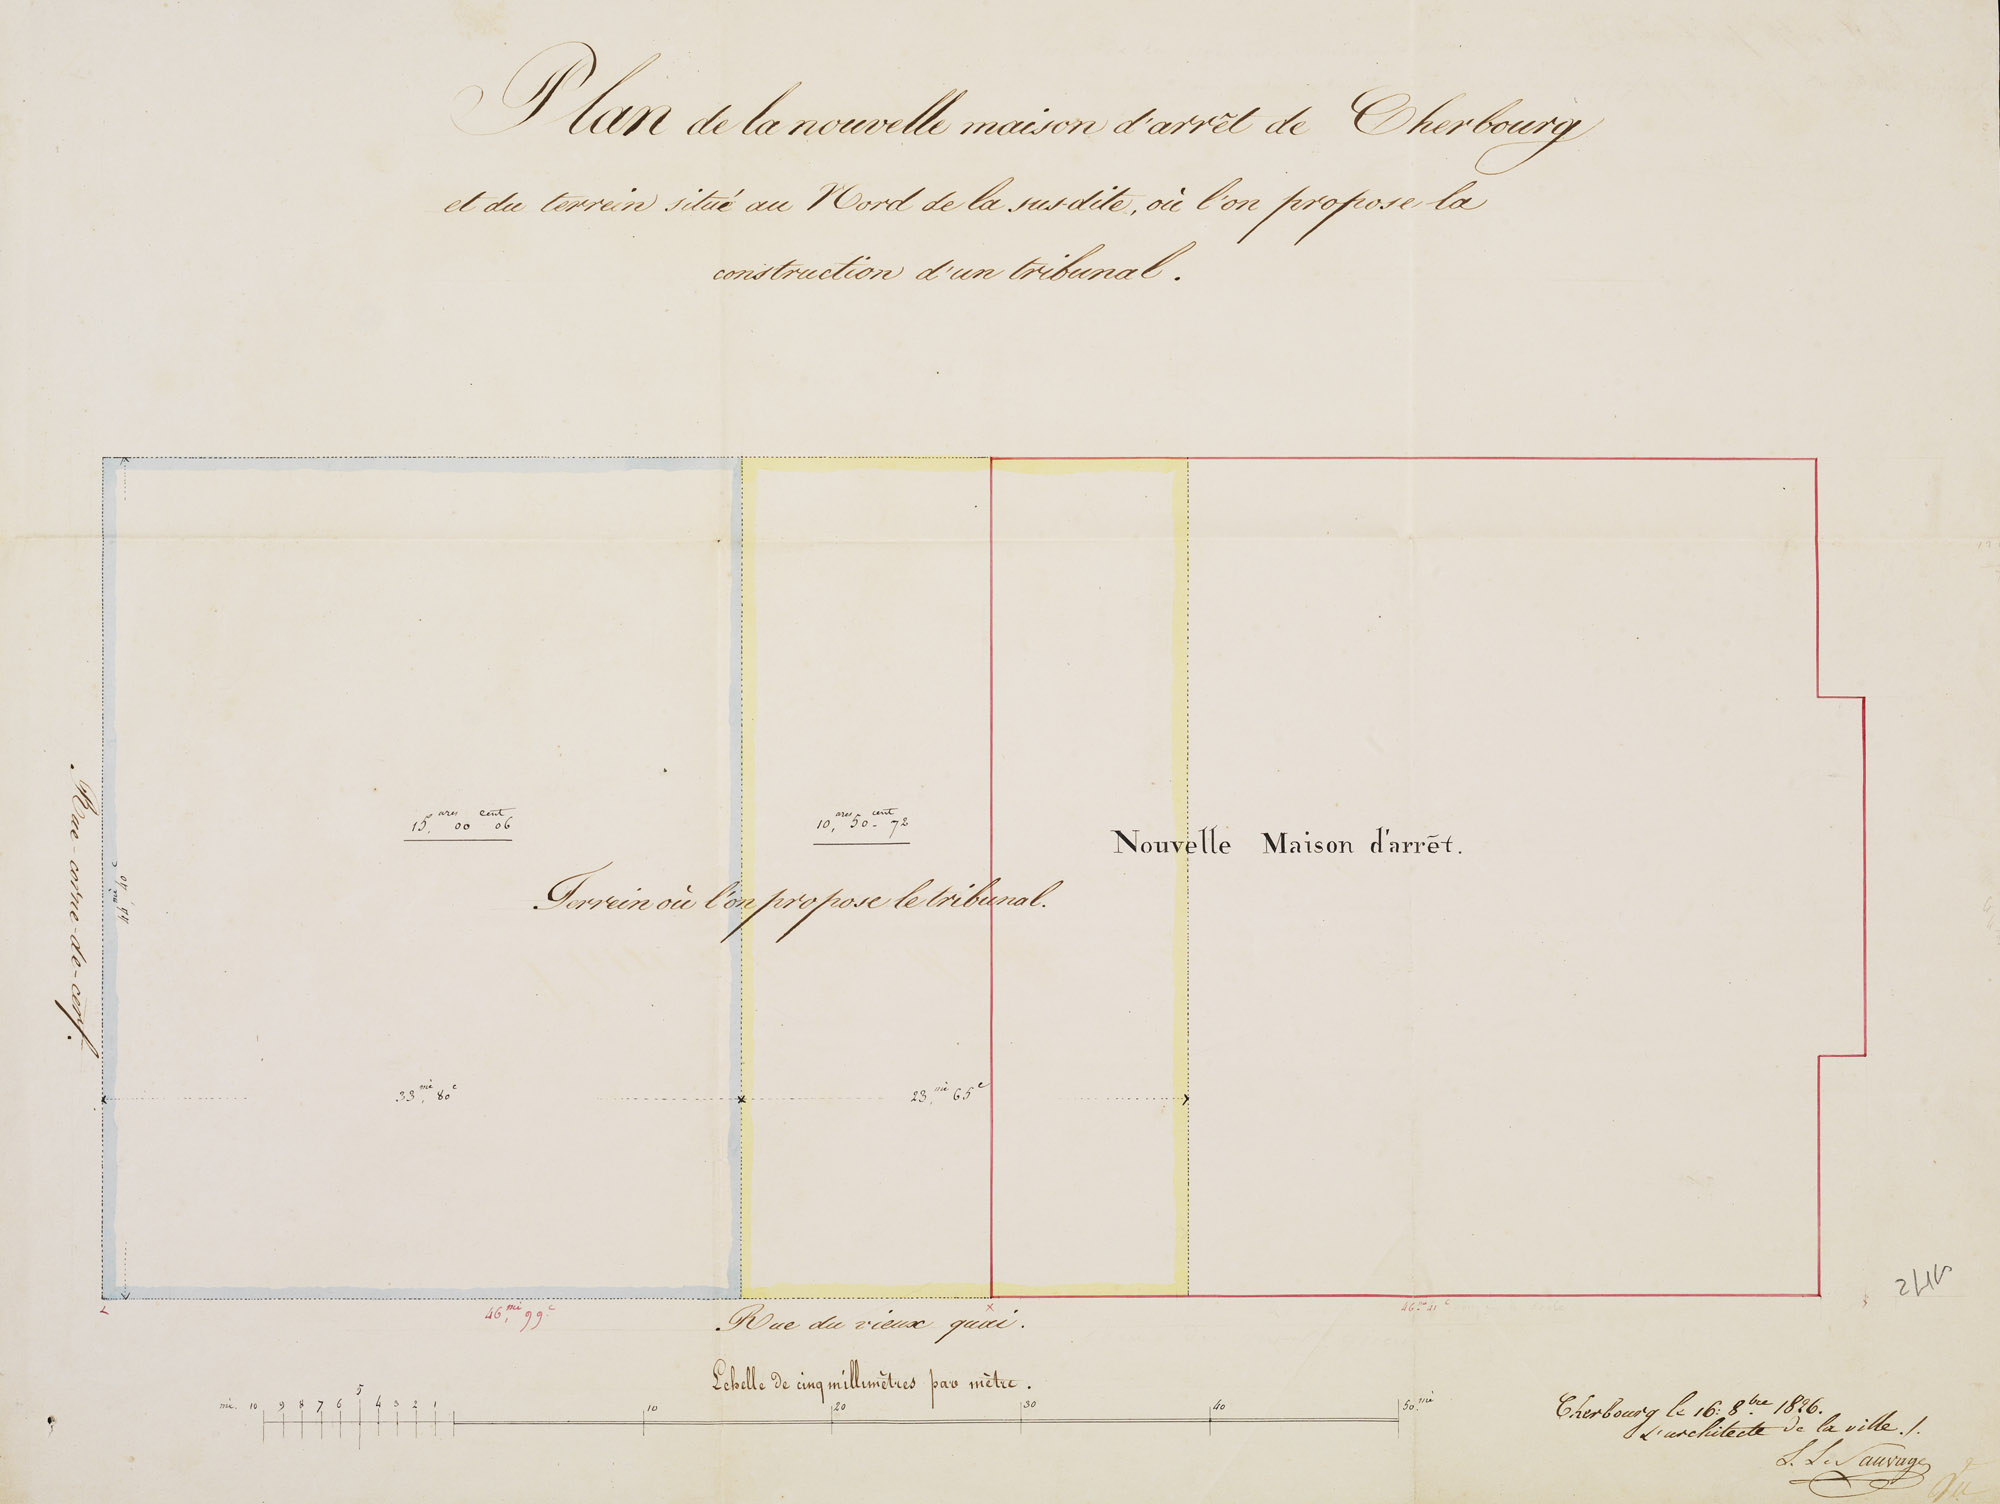 Plan de la nouvelle maison d'arrêt de Cherbourg
et du terrein situé au Nord de la susdite, où l'on propose la
construction d'un tribunal.
15, ares 00 cent 06
10, ares 50 - cent 72
Nouvelle Maison d'arrêt.
Terrein où l'on propose le tribunal.
Rue-corne-de-cerf.
33, mi 80 c
23, mi 65 c
46, mi 99 c
46 m 41 c
Rue du vieux quai.
Echelle de cinq millimètres par mètre.
mi. 10 9 8 7 6 5 4 3 2 1 10 20 30 40 50 mi
Cherbourg le 16: 8bre 1826.
L'architecte de la ville./.
L. Le Sauvage